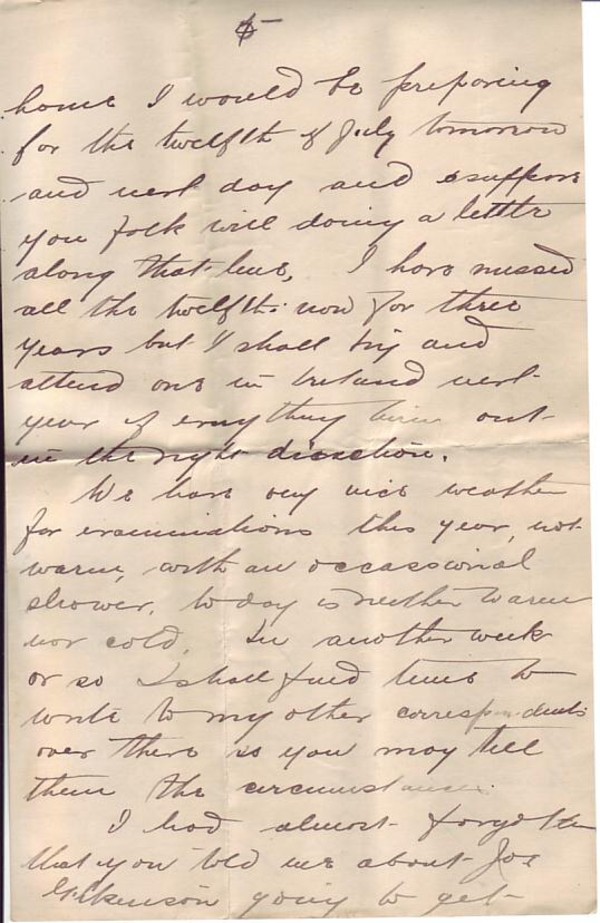 5
home I would be preparing
for the twelfth of July tomorrow
and next day and suppose
you folk will doing a little
along that line, I have missed
all the twelfths now for three
years but I shall try and
attend one in Ireland next
year if everything turn out
in the right direction.
We have very nice weather
for examinations this year, not
warm, with an occassional
shower, today is neither warm
nor cold. In another week
or so I shall find time to
write to my other correspondents
over there so you may tell
them the circumstances.
I had almost forgotten
that you told me about Joe
going to get